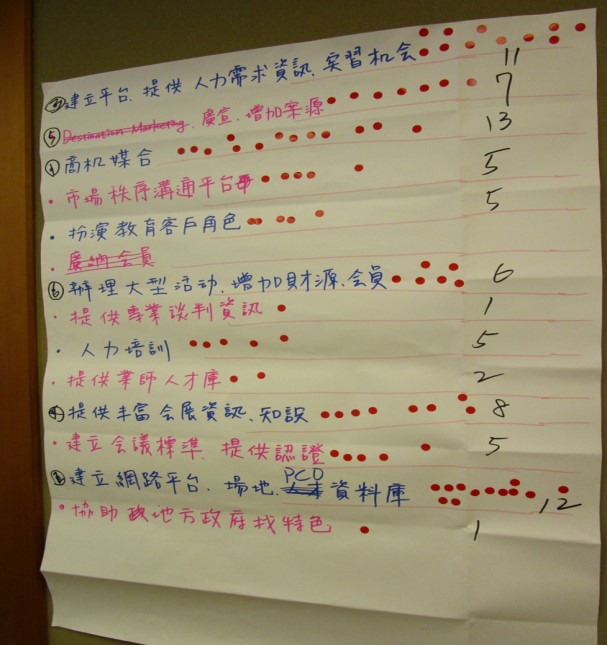 ③建立平台、提供人力需求資訊、实習机会 11
⑤Destination Marketing、廣宣、增加案源 7
①商机媒合 13
・市場秩序溝通平台 5
・扮演教育客戶角色 5
・廣納会員
⑥辦理大型活动、增加財源、会員 6
・提供專業談判資訊 1
・人力培訓 5
・提供業師人才庫 2
④提供丰富会展資訊、知識 8
・建立会議標準、提供認證 5
②建立網路平台、場地、PCO資料庫 12
・協助地方政府找特色 1